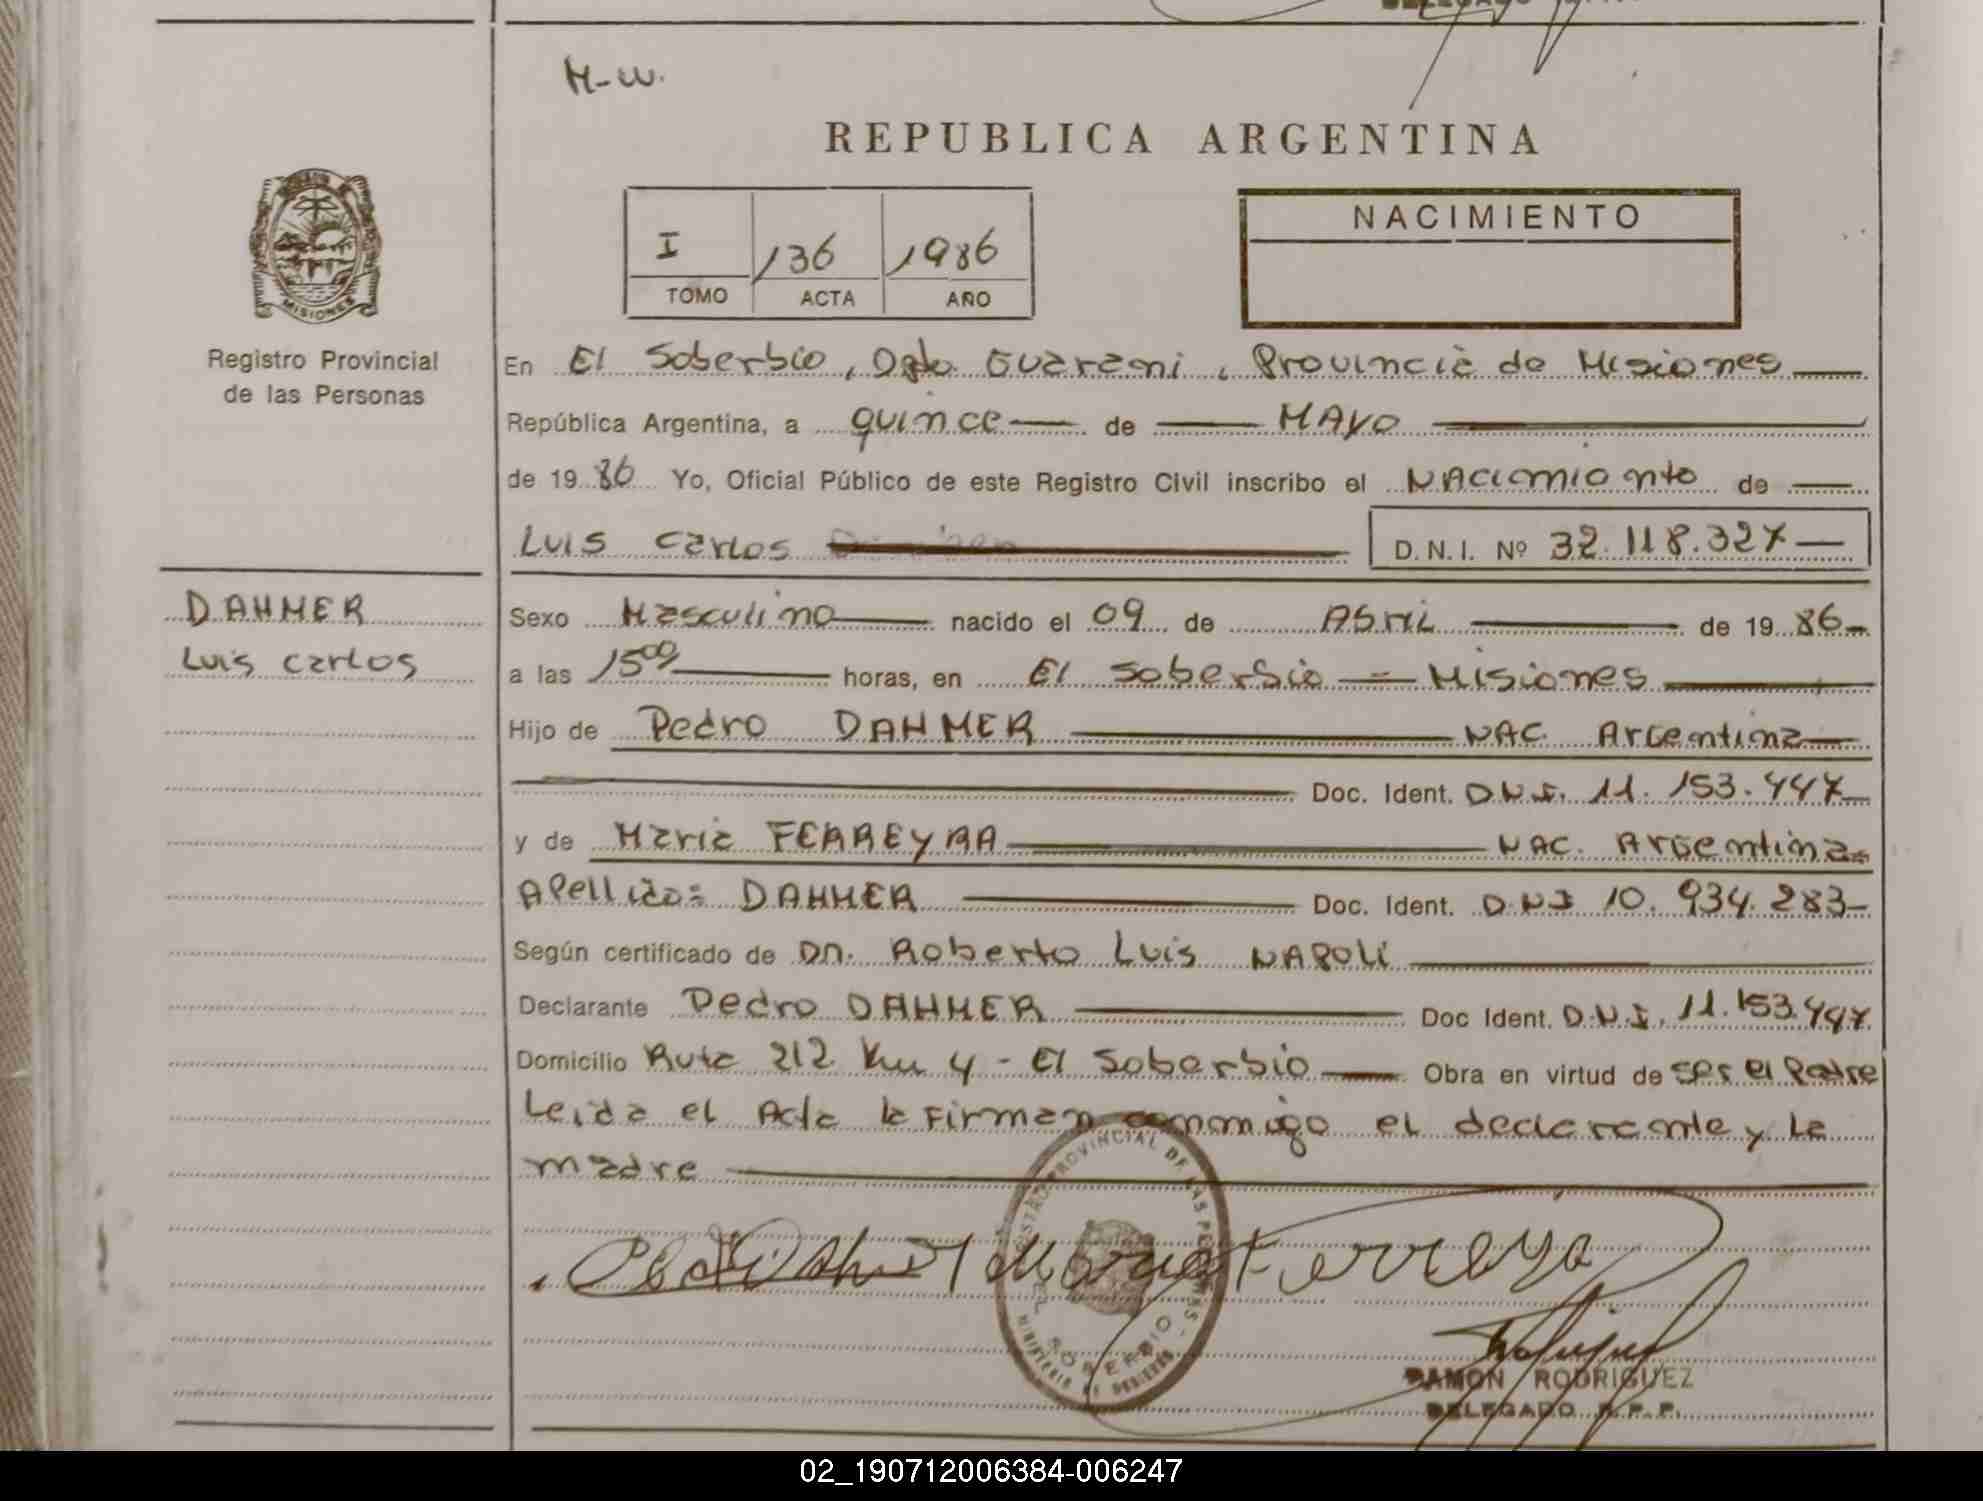 M-W.
REPUBLICA ARGENTINA
I 136 1986
TOMO ACTA AÑO
NACIMIENTO
MISIONES
Registro Provincial
de las Personas
En El Soberbio, Dpto. Guarani, Provincia de Misiones
República Argentina, a quince de MAYO
de 19 86 Yo, Oficial Público de este Registro Civil inscribo el NACimiento de
Luis Carlos
D.N.I. Nº 32.118.327
DAHMER
Luis Carlos
Sexo Masculino nacido el 09 de ABril de 19 86
a las 15 00 horas, en El Soberbio = Misiones
Hijo de Pedro DAHMER NAC. Argentina
Doc. Ident. D.N.I. 11.153.447
y de Maria FERREYRA NAC. Argentina
Apellido: DAHMER Doc. Ident. D.N.I 10.934.283
Según certificado de Dn. Roberto Luis NAPOLI
Declarante Pedro DAHMER Doc Ident. D.N.I. 11.153.447
Domicilio Ruta 212 Km 4 - El Soberbio Obra en virtud de ser el Padre
Leida el Acta la Firman conmigo el declarante y la
madre
PROVINCIAL DE LAS PERSONAS
SOBERBIO
Pedro Dahmer Maria Ferreyra
RAMON RODRIGUEZ
DELEGADO R.P.P.
02_190712006384-006247